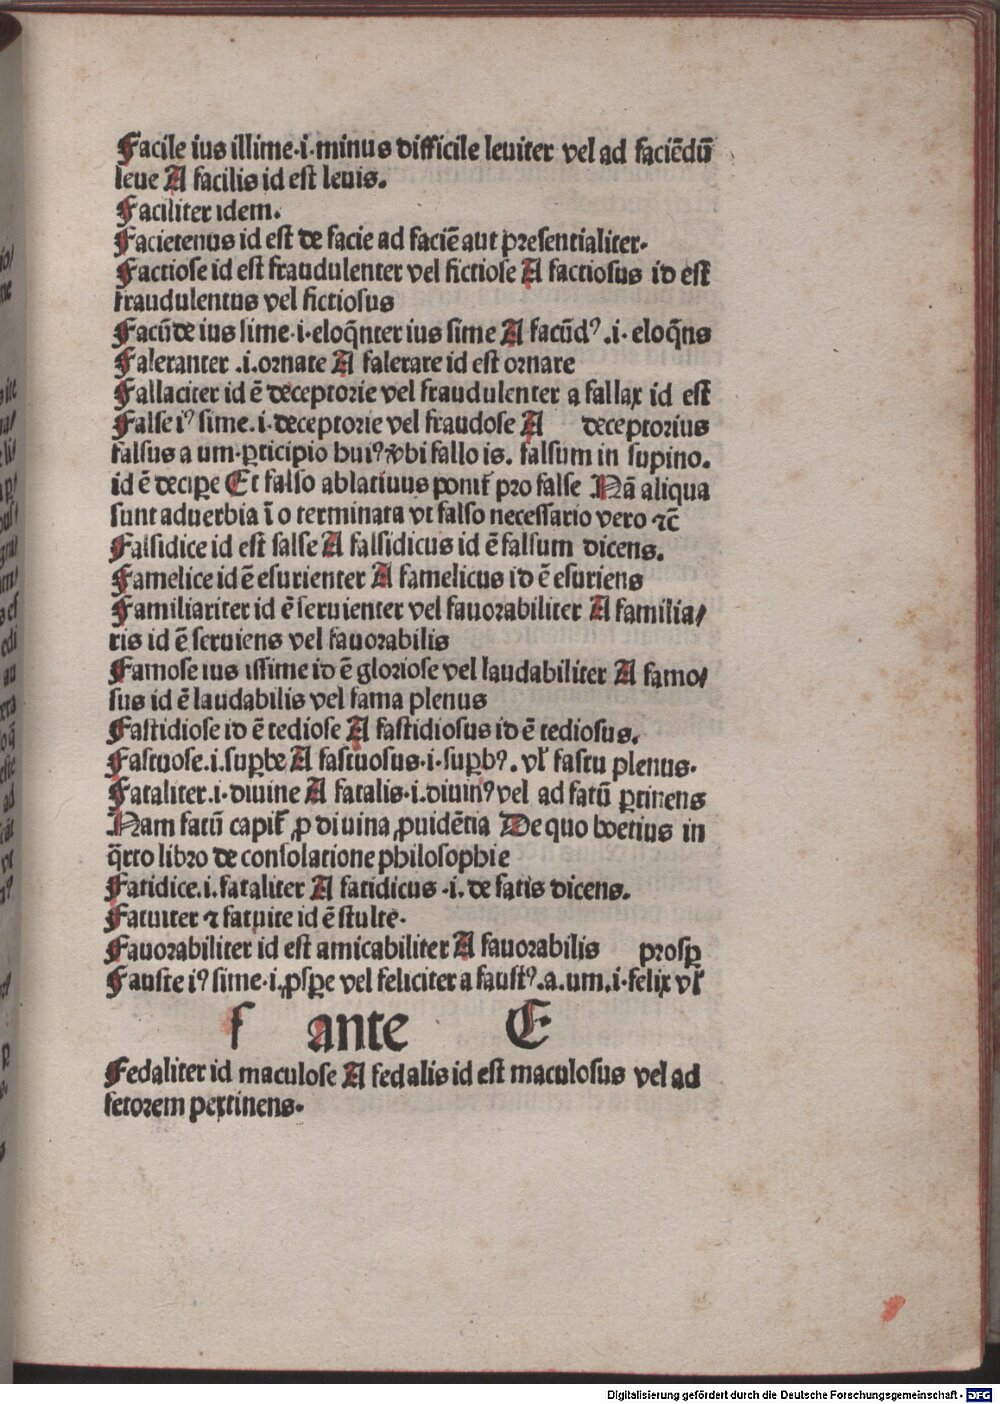 Facile ius illime·i·minus difficile leuiter vel ad faciēdū
leue A facilis id est leuis.
Faciliter idem.
Facietenus id est de facie ad faciē aut presentialiter·
Factiose id est fraudulenter vel fictiose A factiosus id est
fraudulentus vel fictiosus
Facūde ius sime·i·eloq̄nter ius sime A facūdꝰ .i· eloq̄ns
Faleranter .i.ornate A falerare id est ornare
Fallaciter id ē deceptorie vel fraudulenter a fallax id est
False iꝰ sime.i·deceptorie vel fraudose A deceptorius
falsus a um·ꝑticipio huiꝰ ꝟbi fallo is. falsum in supino.
id ē decipe Et falso ablatiuus ponit̄ pro false Nā aliqua
sunt aduerbia ī o terminata vt falso necessario vero ⁊c̄
Falsidice id est false A falsidicus id ē falsum dicens.
Famelice id ē esurienter A famelicus id ē esuriens
Familiariter id ē seruienter vel fauorabiliter A familia/
ris id ē seruiens vel fauorabilis
Famose ius issime id ē gloriose vel laudabiliter A famo/
sus id ē laudabilis vel fama plenus
Fastidiose id ē tediose A fastidiosus id ē tediosus.
Fastuose.i.suꝑbe A fastuosus·i·suꝑbꝰ. vl̄ fastu plenus·
Fataliter.i·diuine A fatalis·i.diuinꝰ vel ad fatū ꝑtinens
Nam fatū capit̄ ꝓ diuina ꝓuidētia De quo boetius in
q̄rto libro de consolatione philosophie
Fatidice.i.fataliter A fatidicus ·i. de fatis dicens.
Fatuiter ⁊ fatuite id ē stulte·
Fauorabiliter id est amicabiliter A fauorabilis prosꝑ
Fauste iꝰ sime·i.ꝓsꝑe vel feliciter a faustꝰ.a.um.i·felix vl̄
f ante E
Fedaliter id maculose A fedalis id est maculosus vel ad
fetorem pertinens·
Digitalisierung gefördert durch die Deutsche Forschungsgemeinschaft - DFG